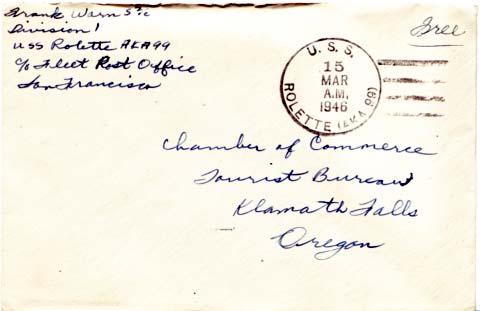 Frank Warn S 2/c
Division 1
USS Rolette AKA 99
c/o Fleet Post Office
San Francisco
Free
U. S. S.
15
MAR
A.M.
1946
ROLETTE (AKA 99)
Chamber of Commerce
Tourist Bureau
Klamath Falls
Oregon